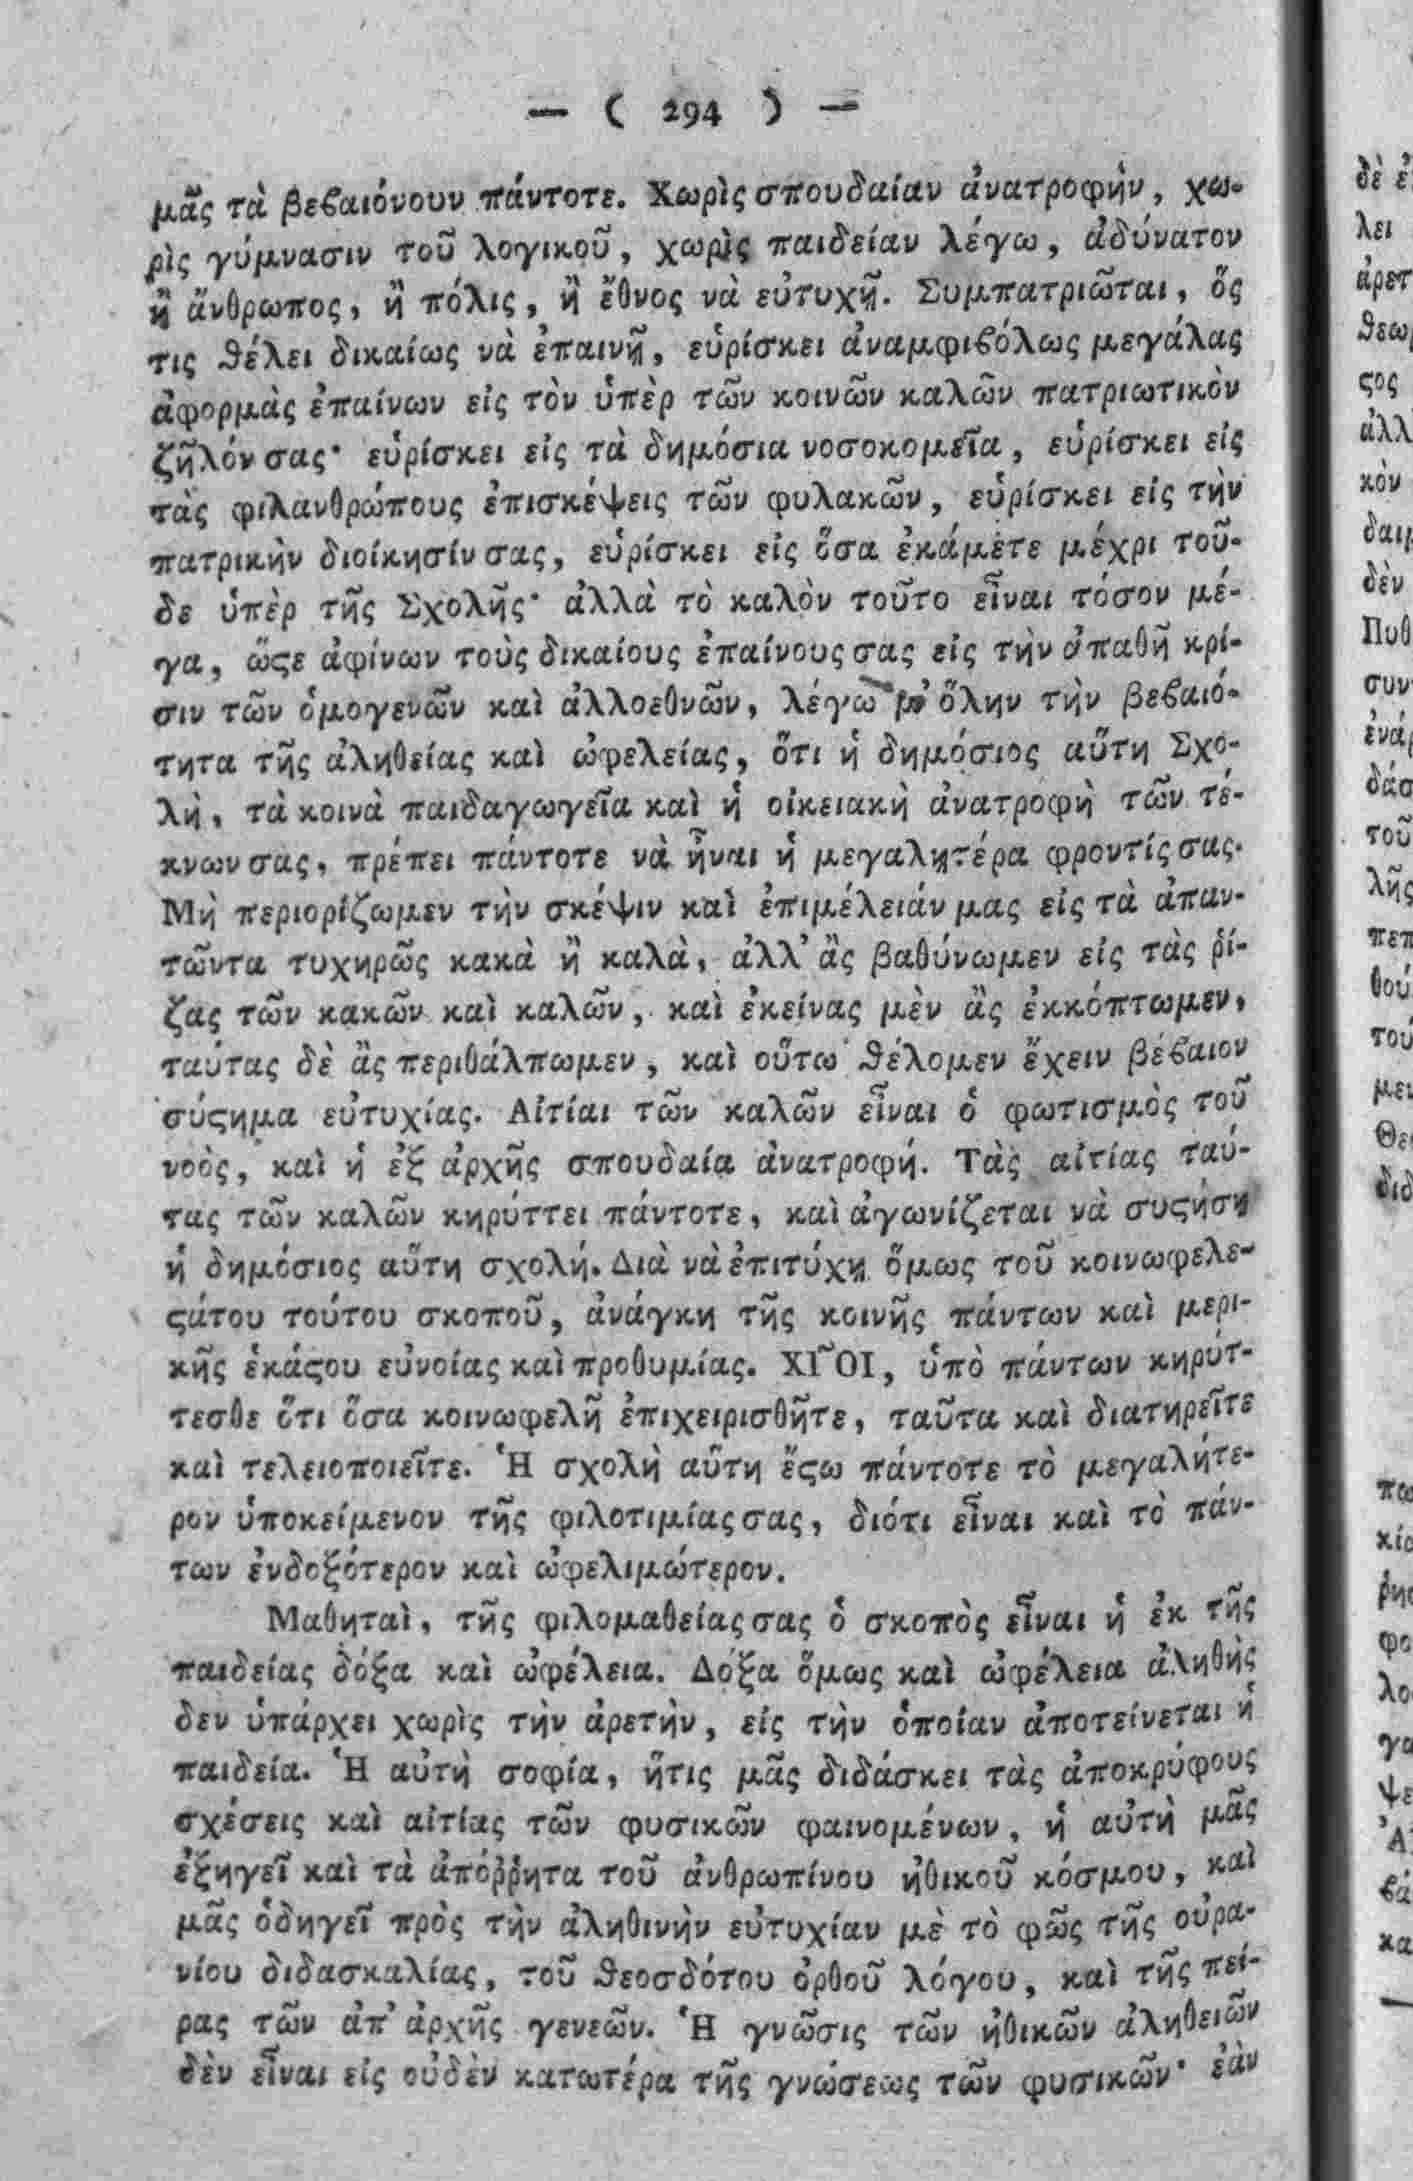 — ( 294 ) —
μᾶς τὰ βεϐαιόνουν πάντοτε. Χωρὶς σπουδαίαν ἀνατροφὴν, χω-
ρὶς γύμνασιν τοῦ λογικοῦ, χωρὶς παιδείαν λέγω, ἀδύνατον
ἢ ἄνθρωπος, ἢ πόλις, ἢ ἔθνος νὰ εὐτυχῇ. Συμπατριῶται, ὅς
τις ϑέλει δικαίως νὰ ἐπαινῇ, εὑρίσκει ἀναμφιϐόλως μεγάλας
ἀφορμὰς ἐπαίνων εἰς τὸν ὑπὲρ τῶν κοινῶν καλῶν πατριωτικὸν
ζῆλόν σας· εὑρίσκει εἰς τὰ δημόσια νοσοκομεῖα, εὑρίσκει εἰς
τὰς φιλανθρώπους ἐπισκέψεις τῶν φυλακῶν, εὑρίσκει εἰς τὴν
πατρικὴν διοίκησίν σας, εὑρίσκει εἰς ὅσα ἐκάμετε μέχρι τοῦ-
δε ὑπὲρ τῆς Σχολῆς· ἀλλὰ τὸ καλὸν τοῦτο εἶναι τόσον μέ-
γα, ὥϛε ἀφίνων τοὺς δικαίους ἐπαίνους σας εἰς τὴν ἀπαθῆ κρί-
σιν τῶν ὁμογενῶν καὶ ἀλλοεθνῶν, λέγω μ' ὅλην τὴν βεϐαιό-
τητα τῆς ἀληθείας καὶ ὠφελείας, ὅτι ἡ δημόσιος αὕτη Σχο-
λὴ, τὰ κοινὰ παιδαγωγεῖα καὶ ἡ οἰκειακὴ ἀνατροφὴ τῶν τέ-
κνων σας, πρέπει πάντοτε νὰ ἦναι ἡ μεγαλητέρα φροντίς σας.
Μὴ περιορίζωμεν τὴν σκέψιν καὶ ἐπιμέλειάν μας εἰς τὰ ἀπαν-
τῶντα τυχηρῶς κακὰ ἢ καλὰ, ἀλλ' ἂς βαθύνωμεν εἰς τὰς ῥί-
ζας τῶν κακῶν καὶ καλῶν, καὶ ἐκείνας μὲν ἂς ἐκκόπτωμεν,
ταύτας δὲ ἂς περιθάλπωμεν, καὶ οὕτω ϑέλομεν ἔχειν βέϐαιον
σύϛημα εὐτυχίας. Αἰτίαι τῶν καλῶν εἶναι ὁ φωτισμὸς τοῦ
νοὸς, καὶ ἡ ἐξ ἀρχῆς σπουδαία ἀνατροφή. Τὰς αἰτίας ταύ-
τας τῶν καλῶν κηρύττει πάντοτε, καὶ ἀγωνίζεται νὰ συϛήσῃ
ἡ δημόσιος αὕτη σχολή. Διὰ νὰ ἐπιτύχῃ ὅμως τοῦ κοινωφελε-
ϛάτου τούτου σκοποῦ, ἀνάγκη τῆς κοινῆς πάντων καὶ μερι-
κῆς ἑκάϛου εὐνοίας καὶ προθυμίας. ΧΙ῀ΟΙ, ὑπὸ πάντων κηρύτ-
τεσθε ὅτι ὅσα κοινωφελῆ ἐπιχειρισθῆτε, ταῦτα καὶ διατηρεῖτε
καὶ τελειοποιεῖτε. Ἡ σχολὴ αὕτη ἔϛω πάντοτε τὸ μεγαλήτε-
ρον ὑποκείμενον τῆς φιλοτιμίας σας, διότι εἶναι καὶ τὸ πάν-
των ἐνδοξότερον καὶ ὠφελιμώτερον.
Μαθηταὶ, τῆς φιλομαθείας σας ὁ σκοπὸς εἶναι ἡ ἐκ τῆς
παιδείας δόξα καὶ ὠφέλεια. Δόξα ὅμως καὶ ὠφέλεια ἀληθὴς
δεν ὑπάρχει χωρὶς τὴν ἀρετὴν, εἰς τὴν ὁποίαν ἀποτείνεται ἡ
παιδεία. Ἡ αὐτὴ σοφία, ἥτις μᾶς διδάσκει τὰς ἀποκρύφους
σχέσεις καὶ αἰτίας τῶν φυσικῶν φαινομένων, ἡ αὐτὴ μᾶς
ἐξηγεῖ καὶ τὰ ἀπόῤῥητα τοῦ ἀνθρωπίνου ἠθικοῦ κόσμου, καὶ
μᾶς ὁδηγεῖ πρὸς τὴν ἀληθινὴν εὐτυχίαν μὲ τὸ φῶς τῆς οὐρα-
νίου διδασκαλίας, τοῦ ϑεοσδότου ὀρθοῦ λόγου, καὶ τῆς πεί-
ρας τῶν ἀπ' ἀρχῆς γενεῶν. Ἡ γνῶσις τῶν ἠθικῶν ἀληθειῶν
δὲν εἶναι εἰς οὐδὲν κατωτέρα τῆς γνώσεως τῶν φυσικῶν· ἐὰν